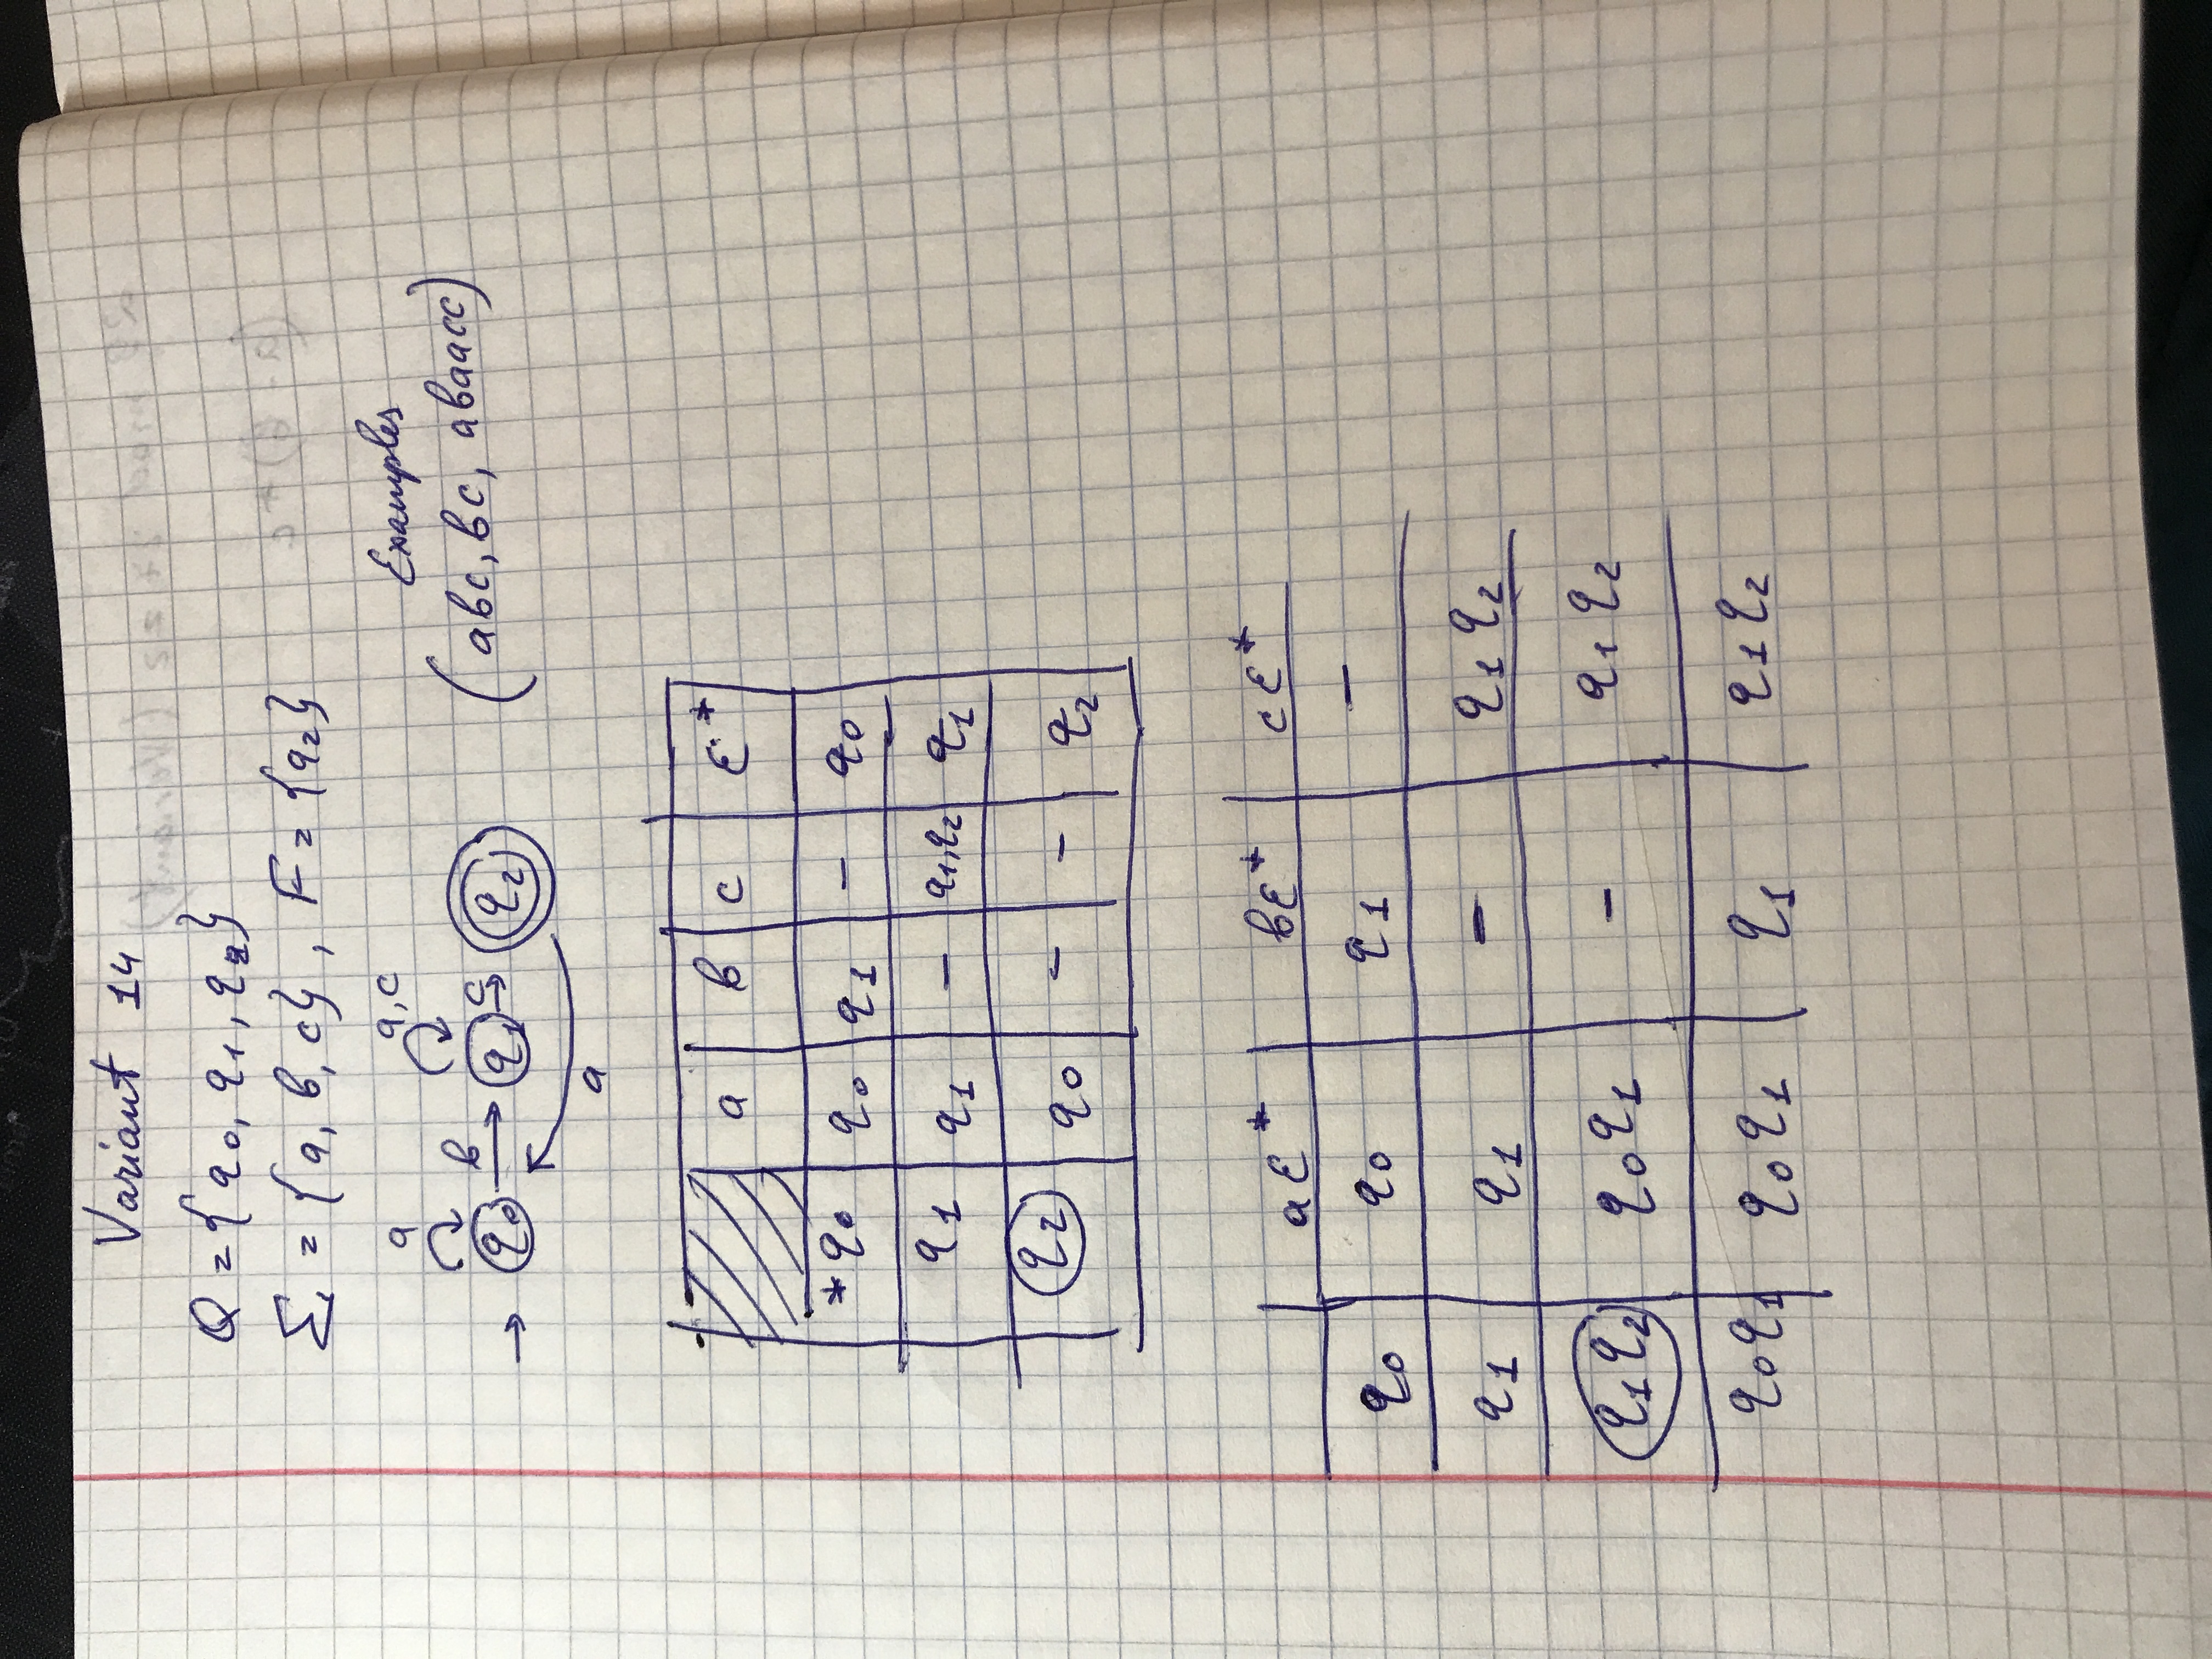 Variant 14
Q = {q0, q1, q2}
Σ = {a, b, c}, F = {q2}
a a,c Examples
q0 b q1 c q2 (abc, bc, abaacc)
a
a b c ε*
*q0 q0 q1 - q0
q1 q1 - q1,q2 q1
q2 q0 - - q2
aε* bε* cε*
q0 q0 q1 -
q1 q1 - q1 q2
q1 q2 q0 q1 - q1 q2
q0 q1 q0 q1 q1 q1 q2